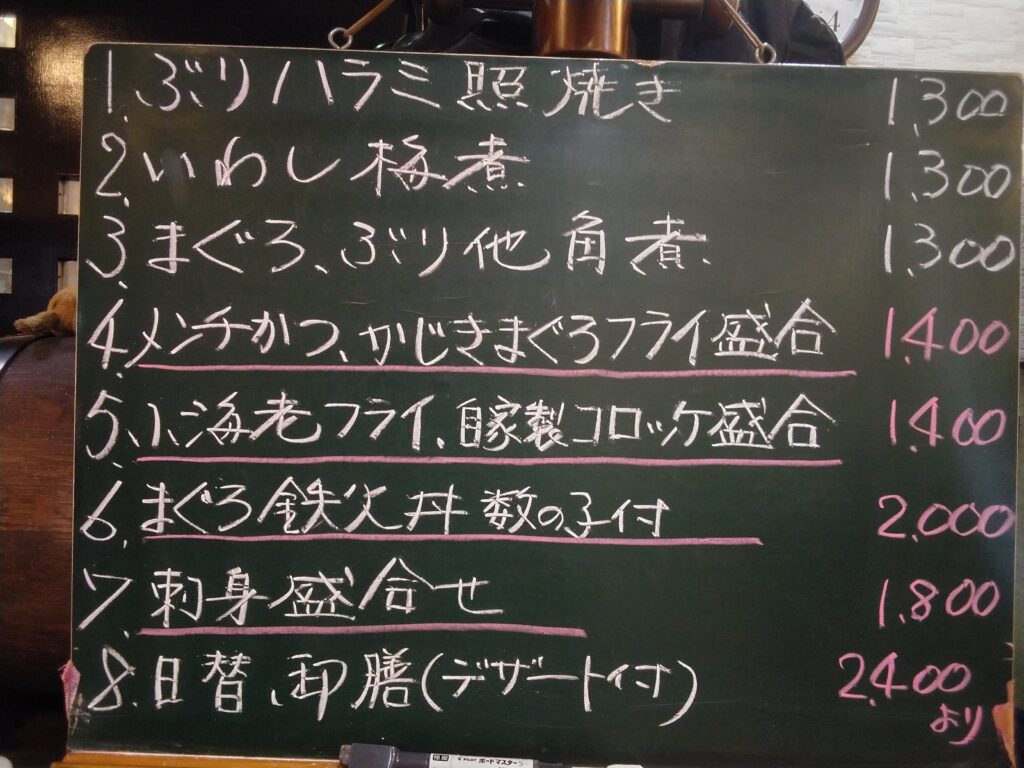 1. ぶりハラミ照焼き 1,300
2. いわし梅煮 1,300
3. まぐろ、ぶり他角煮 1,300
4. メンチかつ、かじきまぐろフライ盛合 1,400
5. 小海老フライ、自家製コロッケ盛合 1,400
6. まぐろ鉄火丼 数の子付 2,000
7. 刺身盛合せ 1,800
8. 日替、御膳(デザート付) 2,400
より
PILOT ボードマスターS